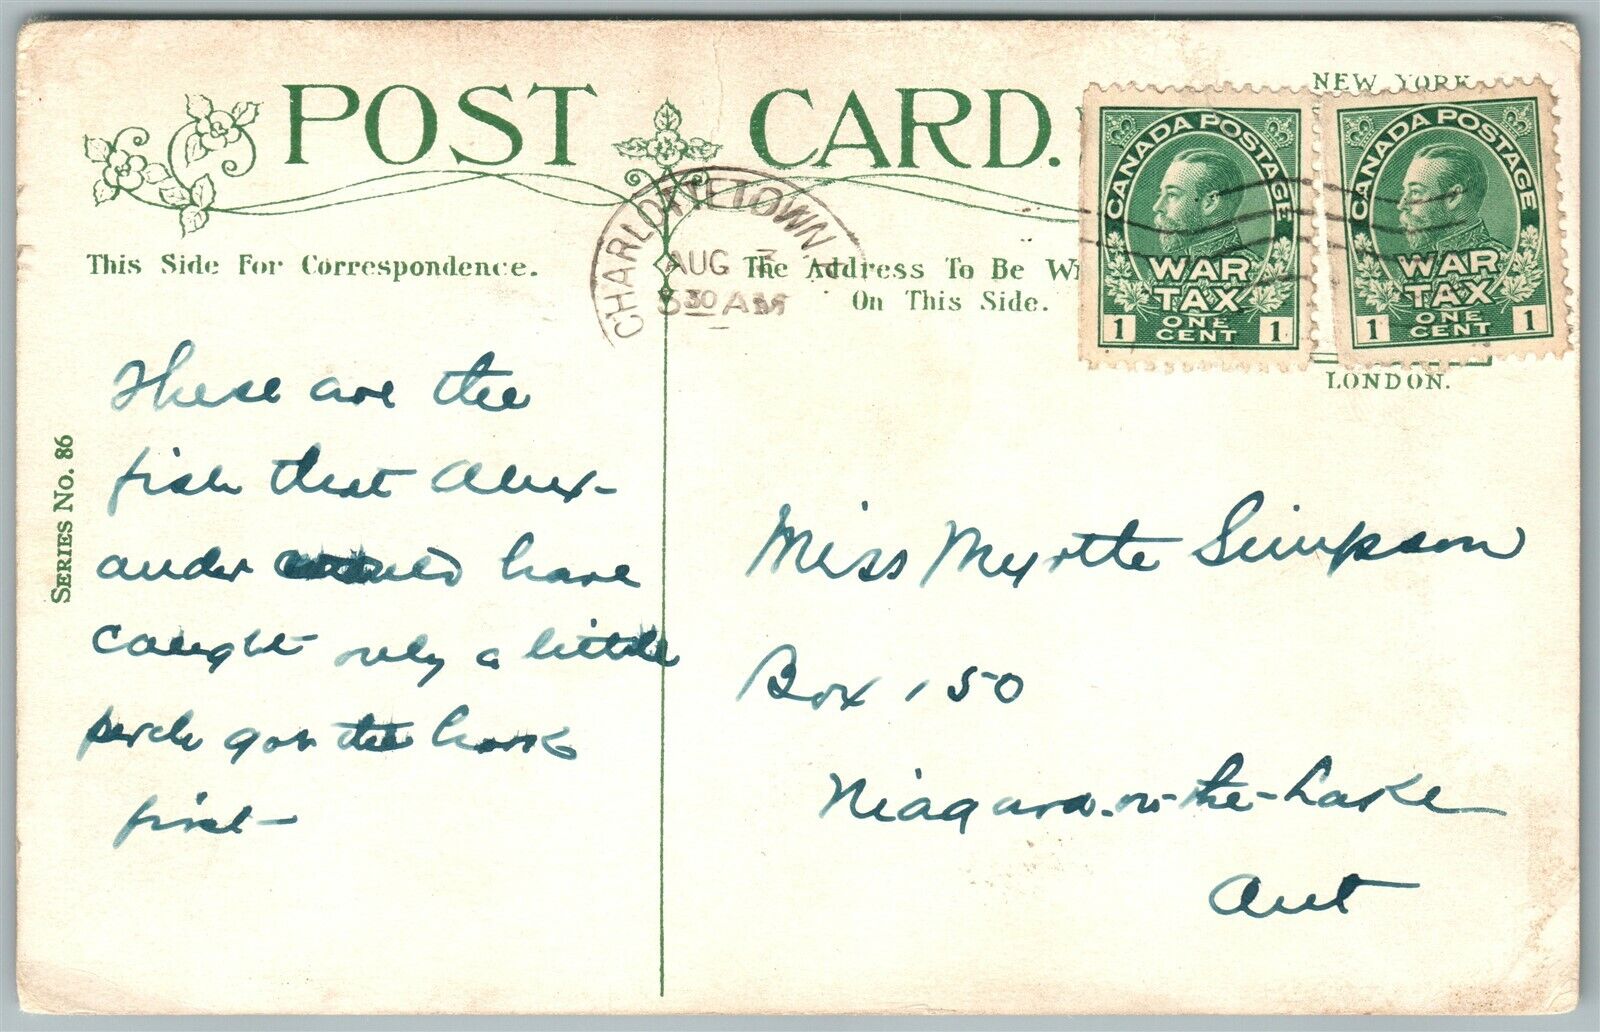 POST CARD.
NEW YORK
CANADA POSTAGE
WAR
TAX
1 ONE CENT 1
CANADA POSTAGE
WAR
TAX
1 ONE CENT 1
CHARLOTTETOWN.
AUG
30 AM
This Side For Correspondence.
The Address To Be
On This Side.
LONDON.
SERIES No. 86
These are the
fish that Alex-
ander have
caught only a little
perch got the hook
first-
Miss Myrtte Simpson
Box 150
Niagara-on-the-Lake
Ont